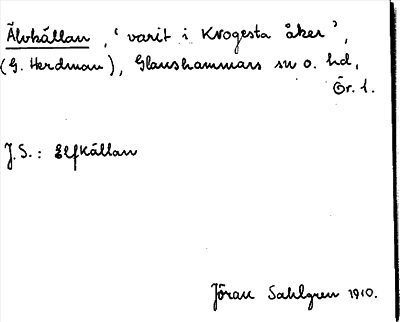 Älvkällan, 'varit i Krogesta åker',
(G. Herdman), Glanshammars sn o. hd,
Ör. l.
J.S.: Elfkällan
Jöran Sahlgren 1910.